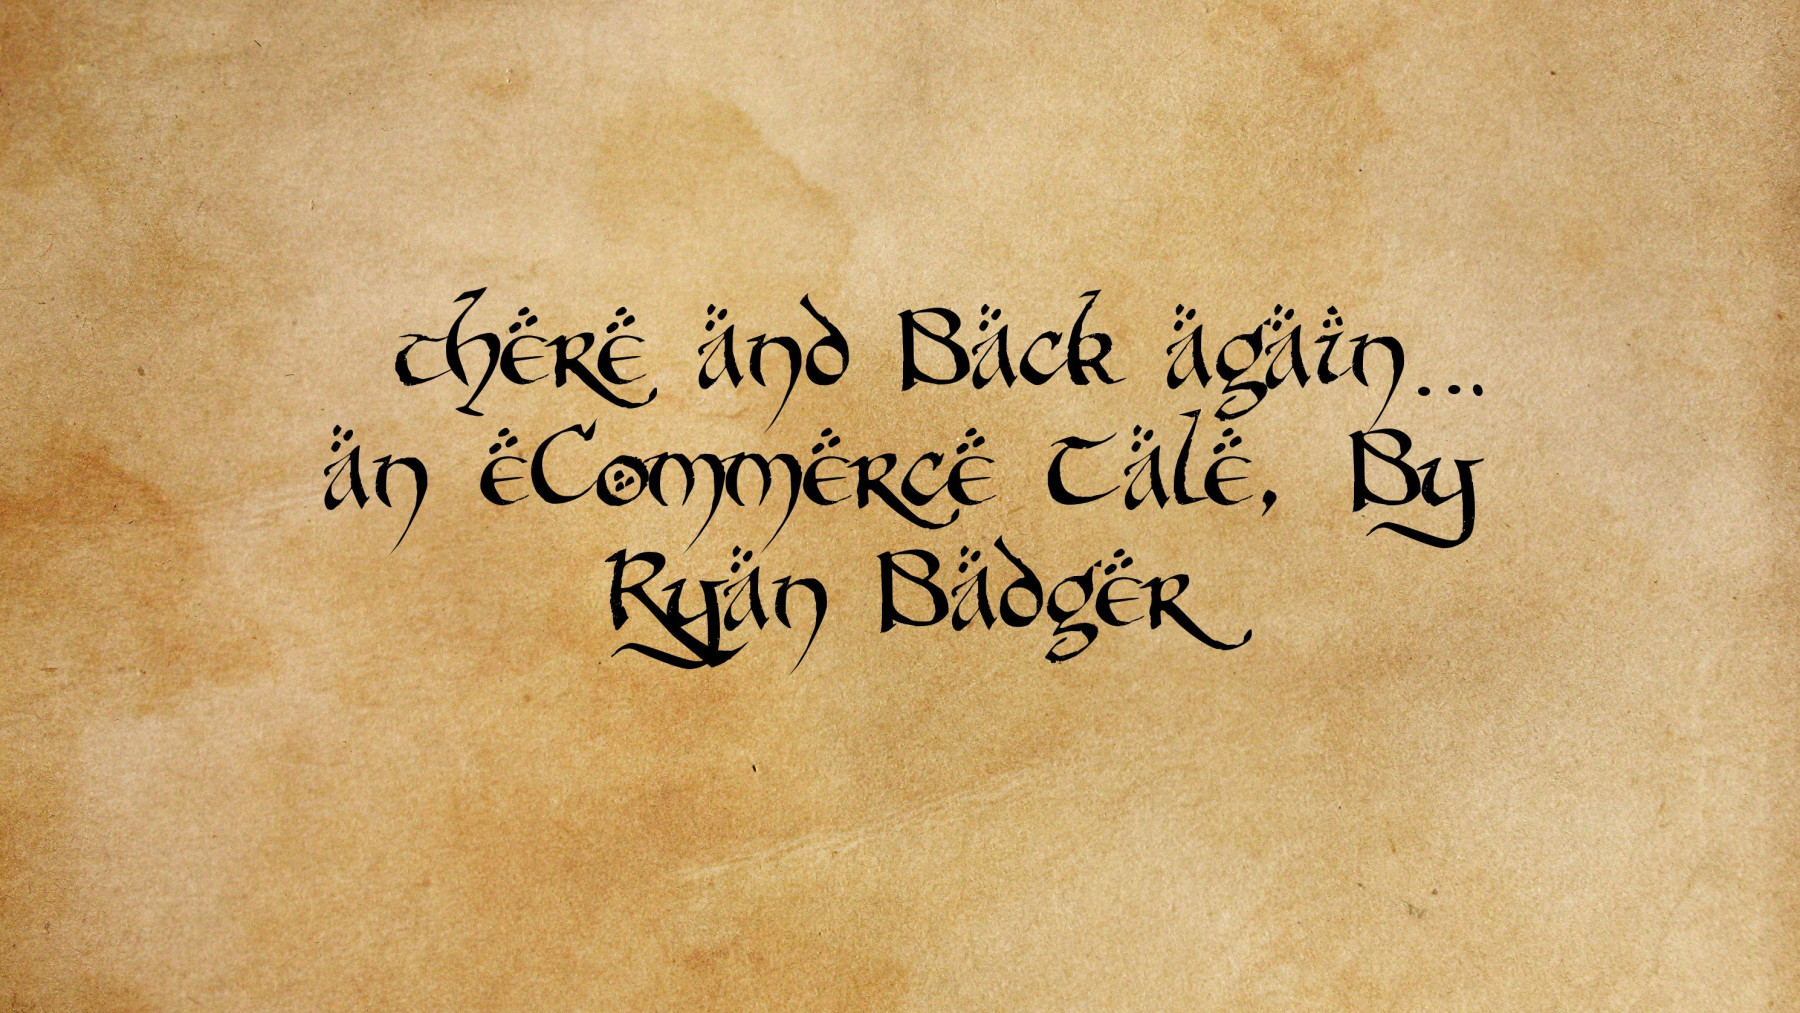 there and Back again...
an eCommerce Tale, By
Ryan Badger